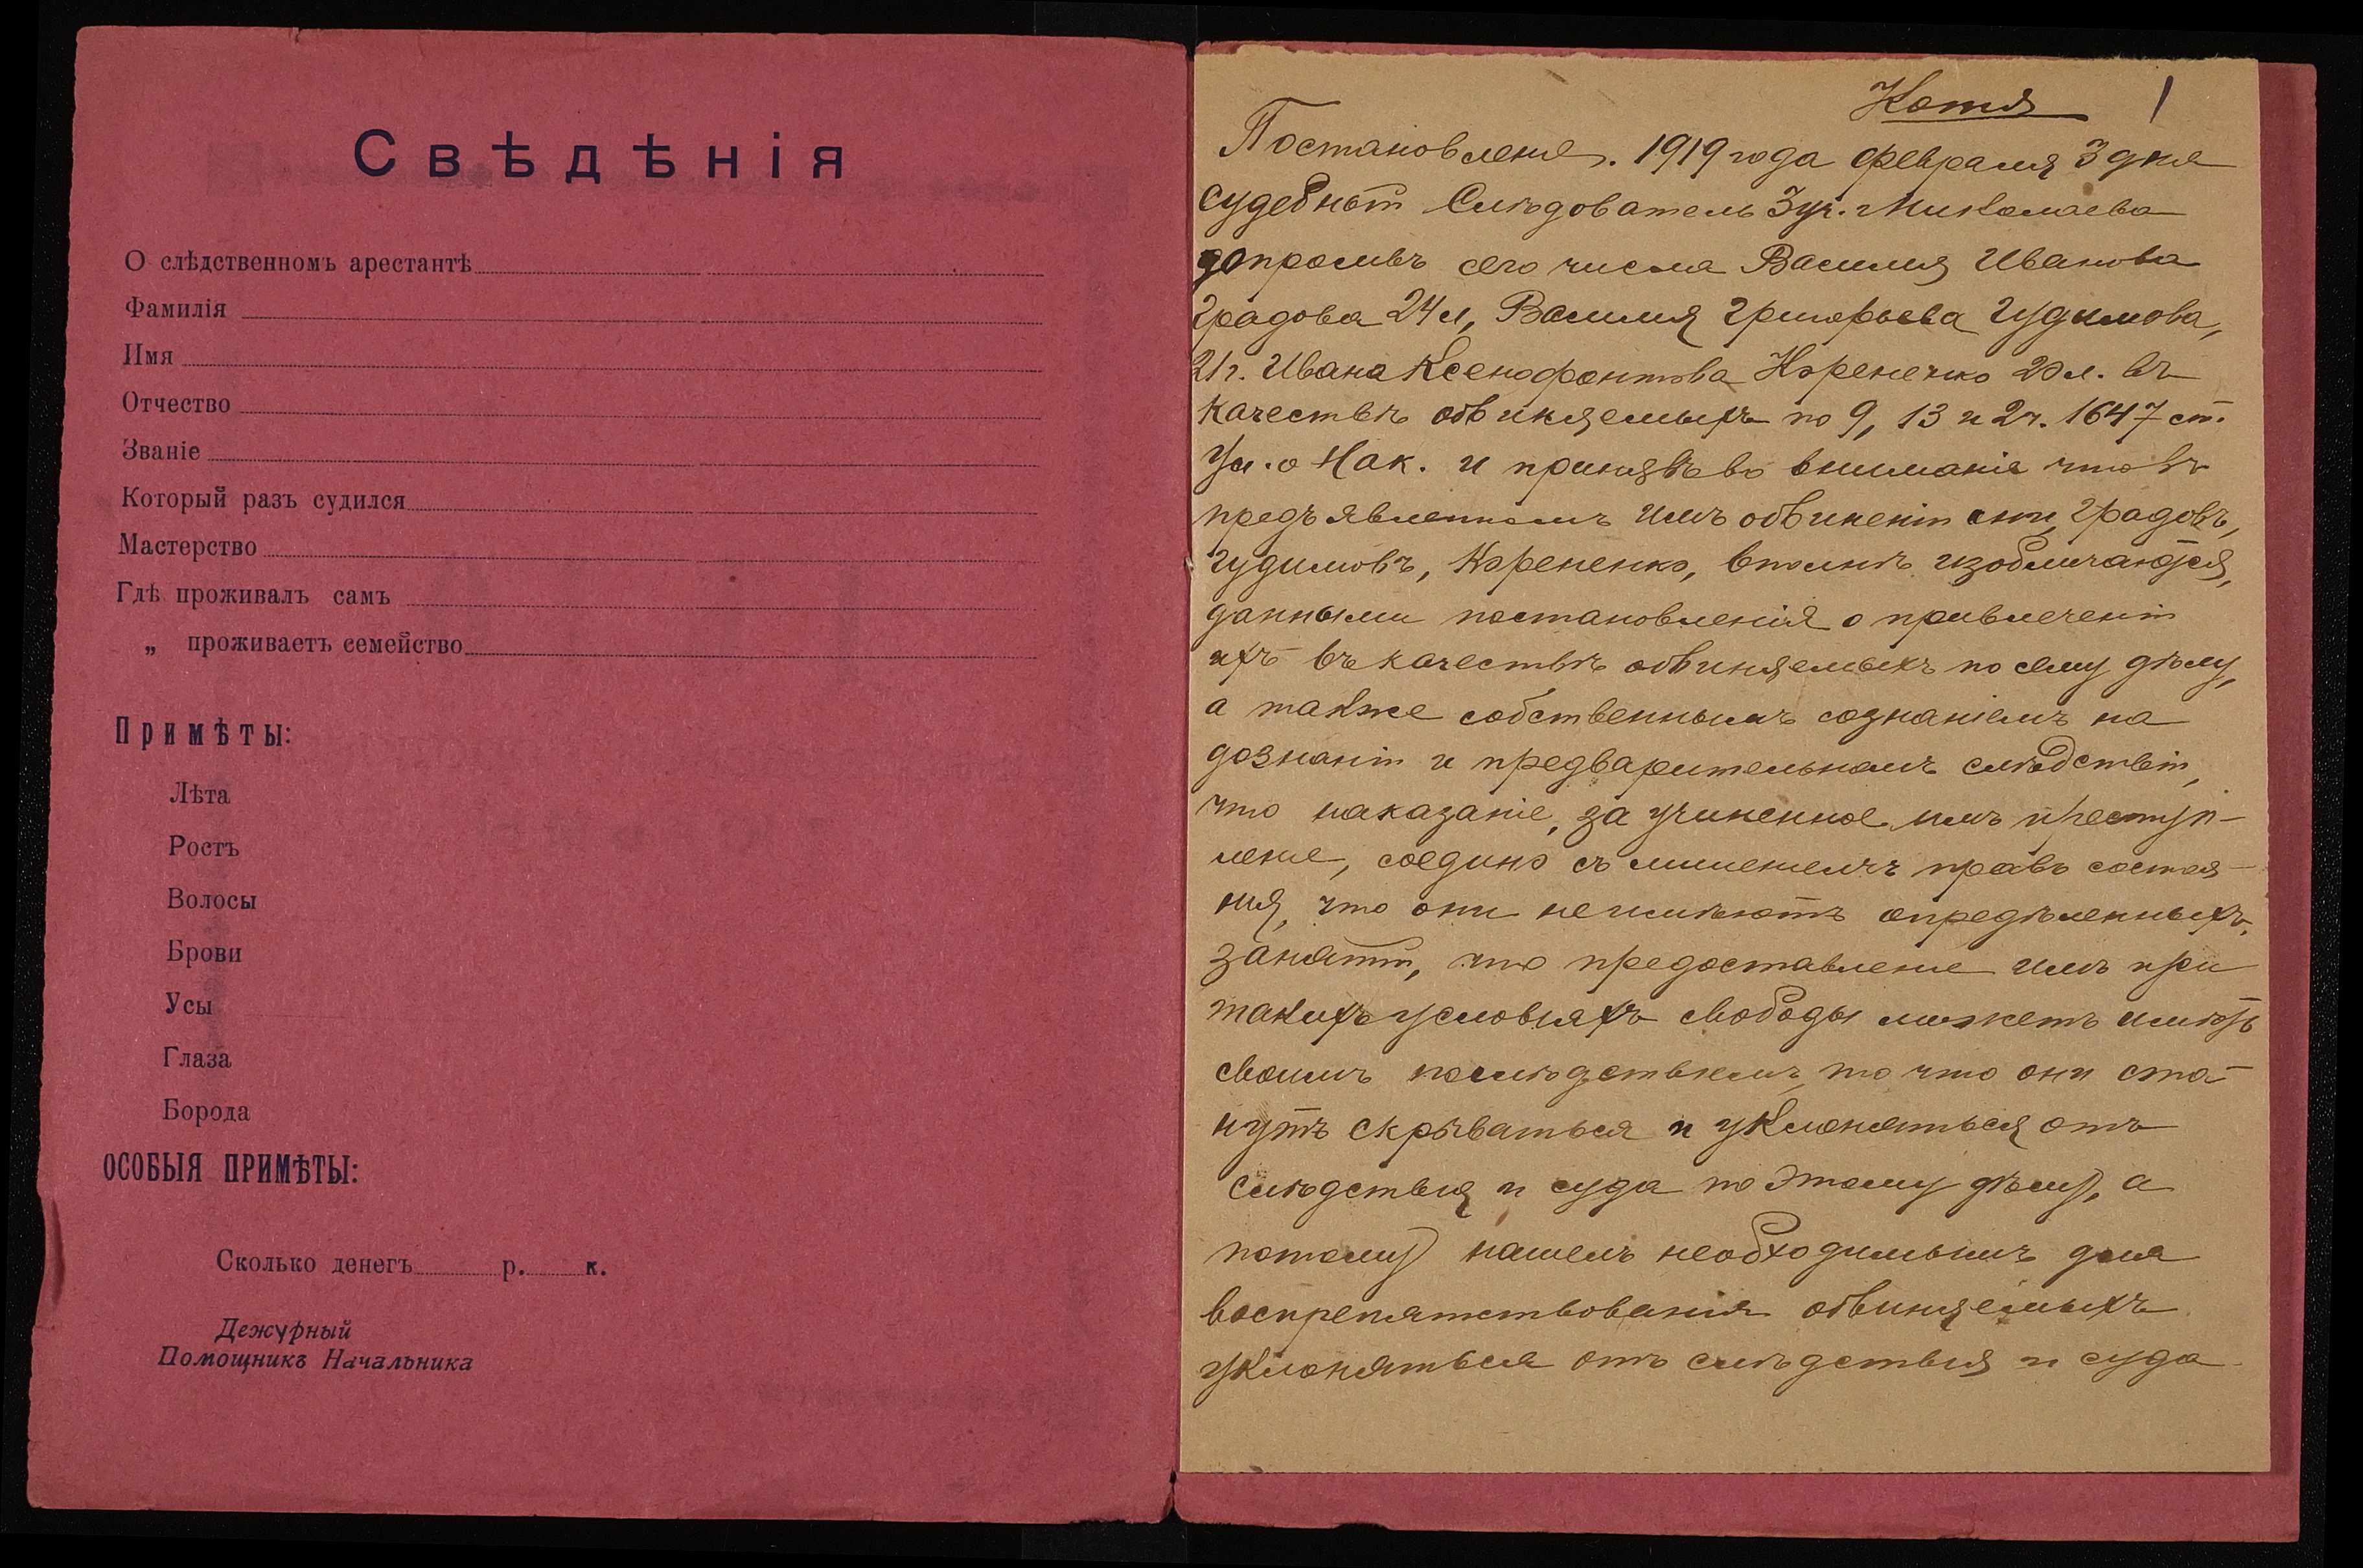 Свѣдѣнія
О слѣдственномъ арестантѣ
Фамилія
Имя
Отчество
Званіе
Который разъ судился
Мастерство
Гдѣ проживалъ самъ
„ проживаетъ семейство
Примѣты:
Лѣта
Ростъ
Волосы
Брови
Усы
Глаза
Борода
ОСОБЫЯ ПРИМѢТЫ:
Сколько денегъ р. к.
Дежурный
Помощникъ Начальника
Копія 1
Постановленіе. 1919 года февраля 3 дня
Судебный Слѣдователь 3 уч. г. Николаева
допросивъ сего числа Василія Иванова
Градова 24 л, Василія Григорьева Гудимова,
21 г. Ивана Ксенофонтова Корененко 20 л. въ
качествѣ обвиняемыхъ по 9, 13 и 2 ч. 1647 ст.
Ул. о Нак. и принявъ во вниманіе что въ
предъявленномъ имъ обвиненіи они, Градовъ,
Гудимовъ, Корененко, вполнѣ изобличаются,
данными постановленія о привлеченіи
ихъ въ качествѣ обвиняемыхъ по сему дѣлу,
а также собственнымъ сознаніемъ на
дознаніи и предварительномъ слѣдствіи,
что наказаніе, за учиненное ими преступ-
леніе, соедино съ лишеніемъ правъ состоя-
нія, что они не имѣютъ опредѣленныхъ
занятій, что предоставленіе имъ при
такихъ условіяхъ свободы можетъ имѣть
своимъ послѣдствіемъ то что они ста-
нутъ скрываться и уклоняться отъ
слѣдствія и суда по этому дѣлу, а
потому нашелъ необходимымъ для
воспрепятствованія обвиняемыхъ
уклоняться отъ слѣдствія и суда